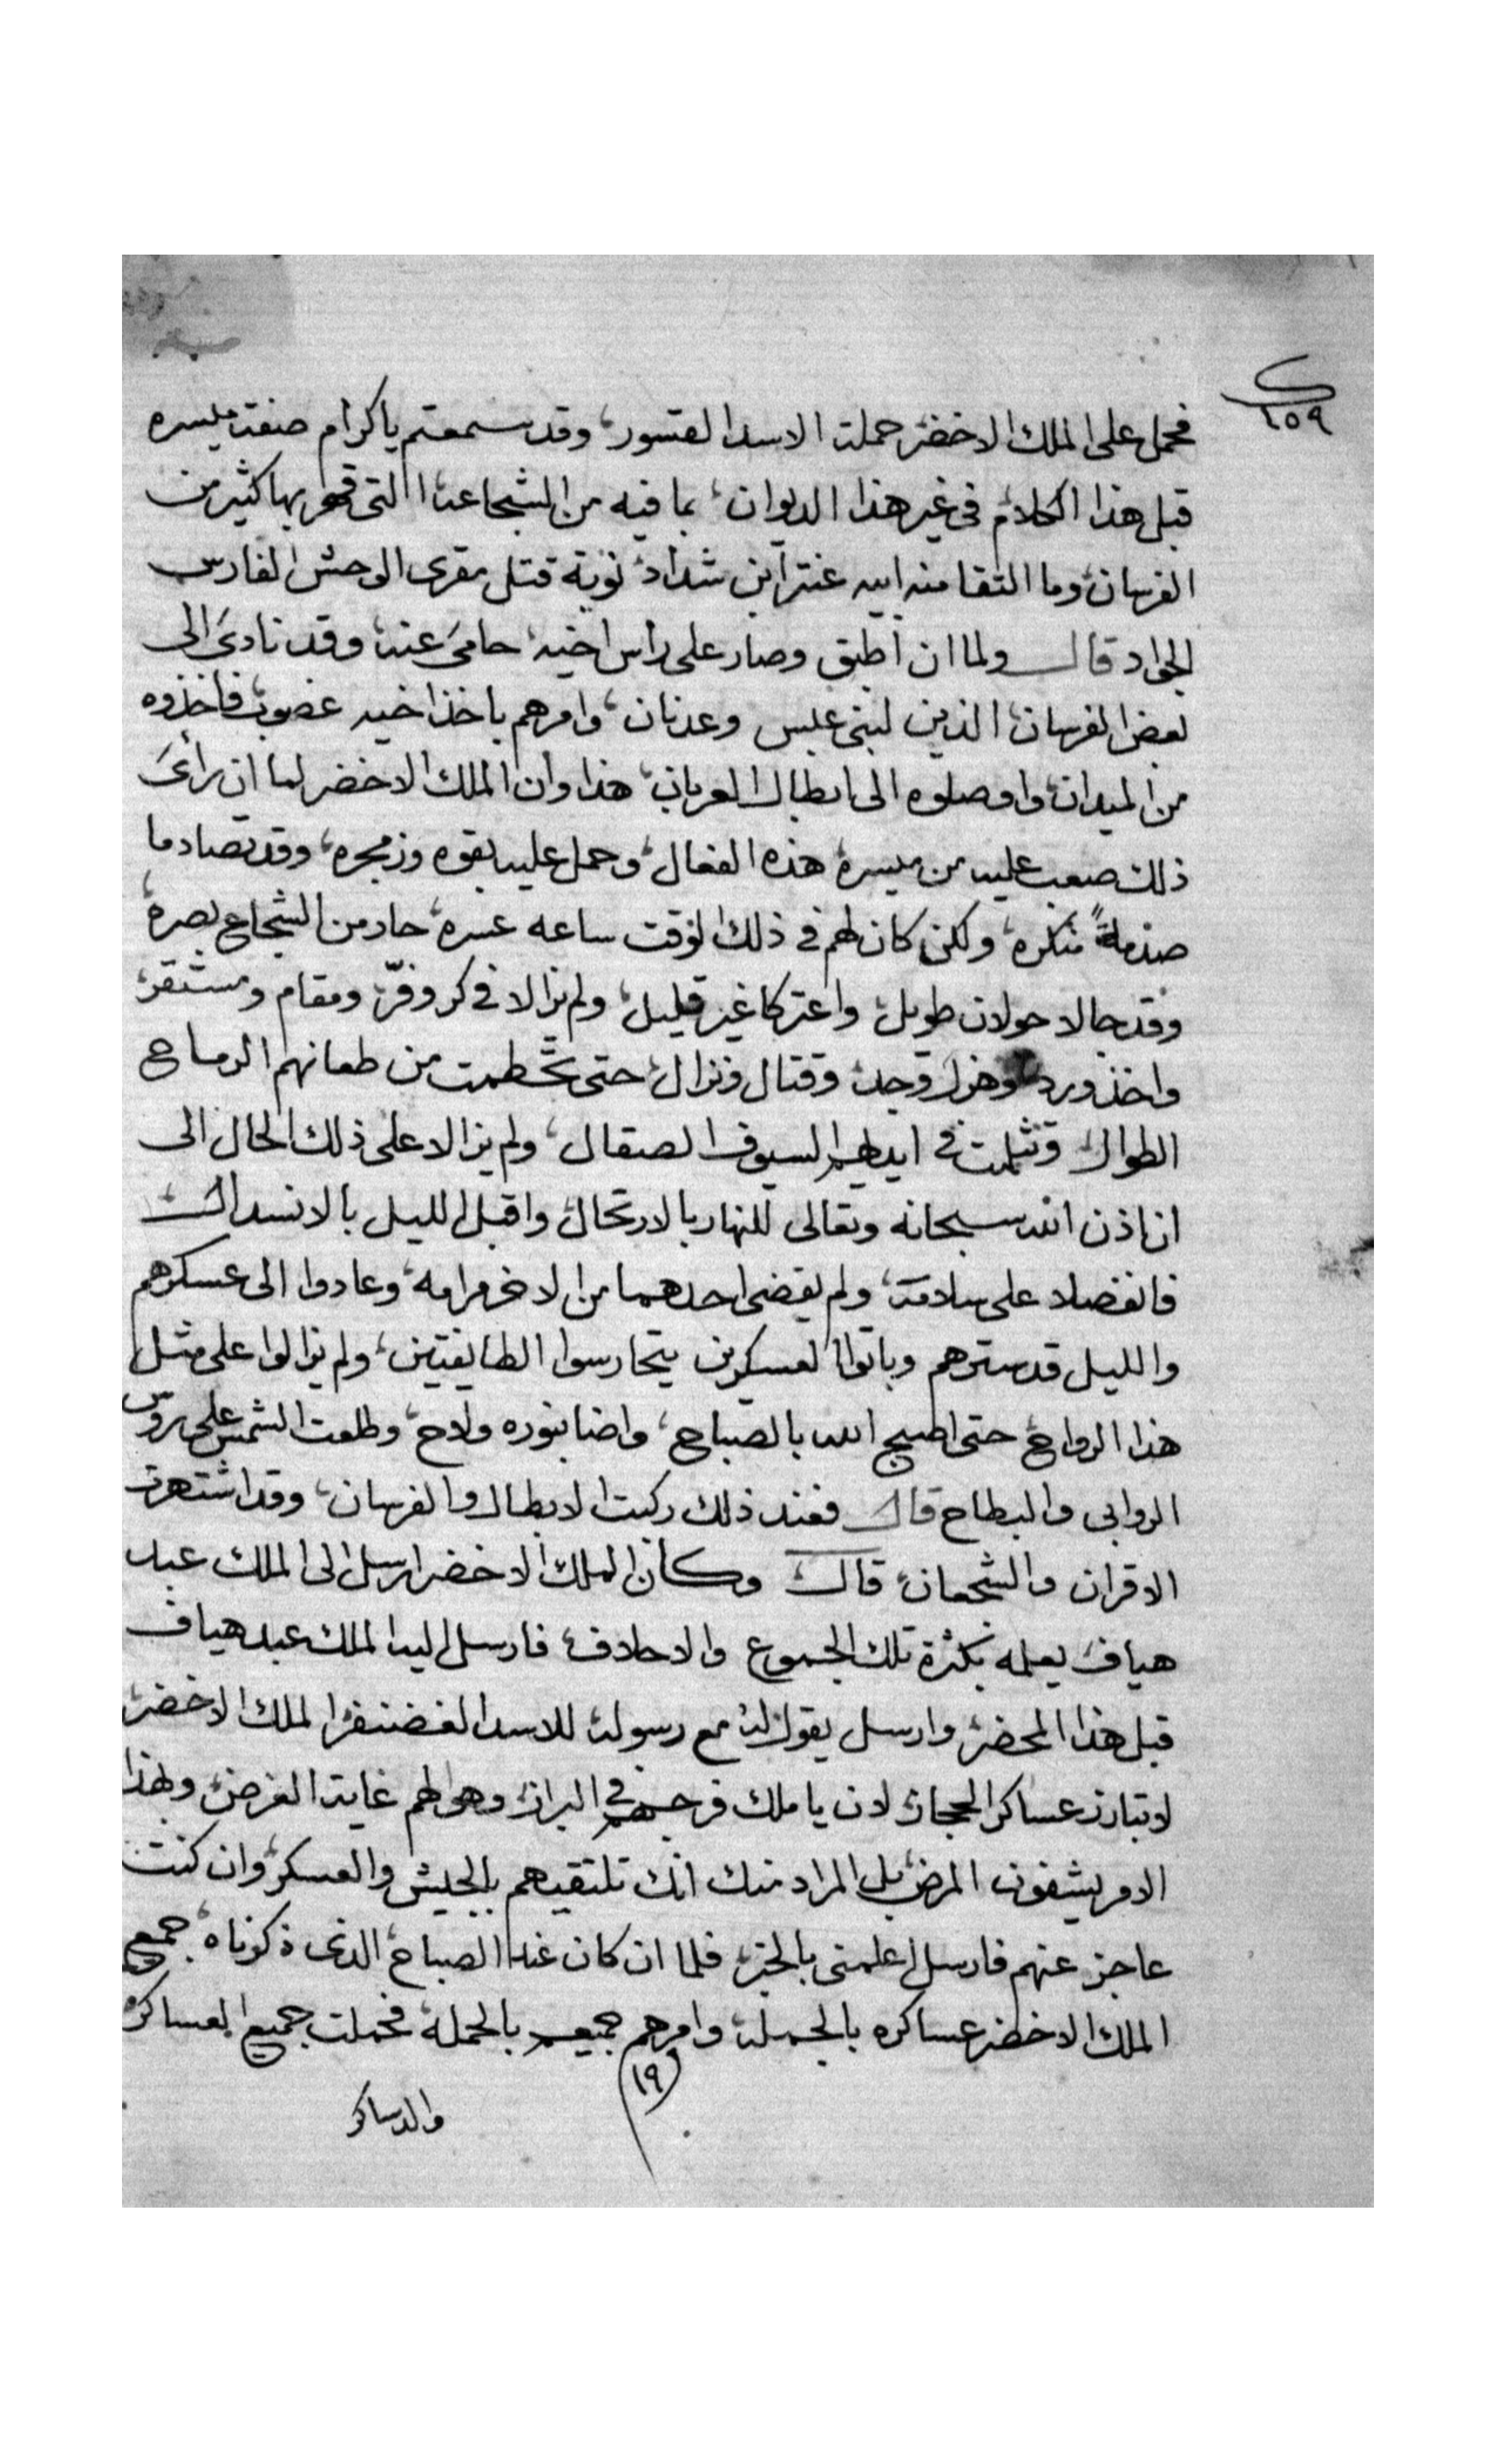 ٦٥٩
فحمل على الملك الاخضر حملت الاسد القسور، وقد سمعتم ياكرام صفت ميسره
قبل هذا الكلام فى غير هذا الديوان، بما فيه من الشجاعه التى قهر بها كثير من
الفرسان، وما التقا منه ابيه عنتر ابن شداد نوبة قتل مقرى الوحش الفارس
الجواد قال ولما ان اطبق وصار على راس اخيه حامىَ عنه، وقد نادىَ الى
بعض الفرسان، الذين لبنى عبس وعدنان، وامرهم باخذ اخيه غصوب، فاخذوه
من الميدان، واوصلوه الى ابطال العربان، هذا وان الملك الاخضر لما ان رأىَ
ذلك صعب عليه من ميسره هذه الفعال، وحمل عليه بقوه وزمجره، وقد تصادما
صدمةً منكره، ولكن كان لهم فى ذلك الوقت ساعه عسره، حار من الشجاع بصره،
وقد جالا جولان طويل، واعتركا غير قليل، ولم يزالا فى كر وفرّ، ومقام ومستقر،
واخذ ورد وهزل وجد، وقتال ونزال، حتى تحطمت من طعانهم الرماح
الطوال وتثلمت فى ايديهم السيوف الصقال، ولم يزالا على ذلك الحال الى
ان اذن الله سبحانه وتعالى للنهار بالارتحال واقبل الليل بالانسدال
فانفصلا على سلامة، ولم يقضى احدهما من الاخر مرامه، وعادوا الى عسكرهم
والليل قد سترهم وباتوا العسكرين يتحارسوا الطايفتين، ولم يزالوا على مثل
هذا الرواح، حتى اصبح الله بالصباح، واضا بنوره ولاح، وطلعت الشمس على روس
الروابى والبطاح قال فعند ذلك ركبت الابطال والفرسان، وقد اشتهرت
الاقران والشجعان، قال وكان الملك الاخضر ارسل الى الملك عبد
هياف يعلمه بكثرة تلك الجموع والاحلاف، فارسل اليه الملك عبد هياف
قبل هذا المحضر، وارسل يقول له مع رسوله للاسد الغضنفر الملك الاخضر،
لا تبارز عساكر الحجاز، لان يا ملك فرحهم فى البراز، وهو لهم غاية الغرض، وبهذا
الامر يشفون المرض، بل المراد منك انك تلتقيهم بالجيش والعسكر، وان كنت
عاجز عنهم فارسل اعلمنى بالخبر، فلما ان كان غد الصباح، الذى ذكرناه، جمع
الملك الاخضر عساكره بالجمله، وامرهم جميعهم بالحمله، فحملت جميع العساكر
(١٩
والدساكر